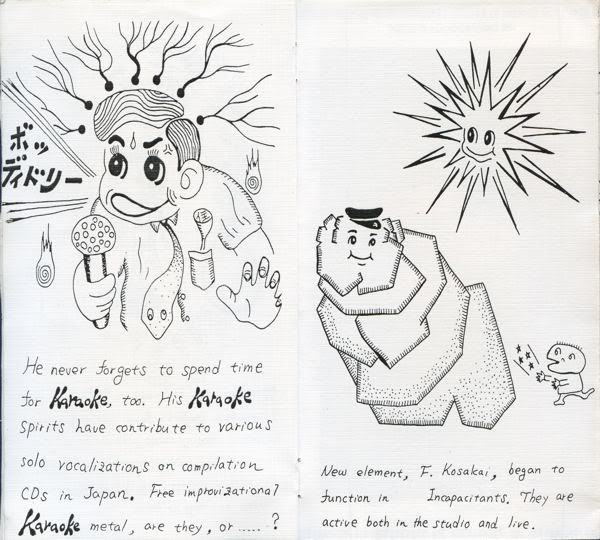 ボッ
ディドリー
He never forgets to spend time
for Karaoke, too. His Karaoke
Spirits have contribute to various
solo vocalizations on compilation
CDs in Japan. Free improvizational
Karaoke metal, are they, or ..... ?
New element, F. Kosakai, began to
function in Incapacitants. They are
active both in the studio and live.